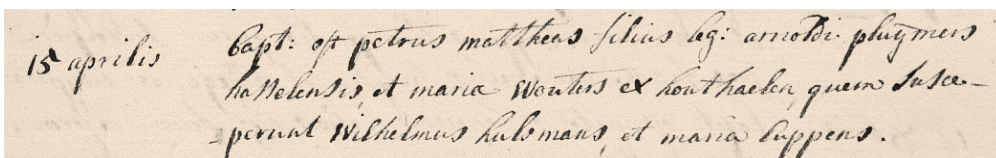 15 aprilis bapt: est petrus mattheus filius leg: arnoldi pluijmers
hasselensis, et maria Wouters ex houthaelen, quem susce-
perunt Wilhelmus hulsmans, et maria Cuppens.